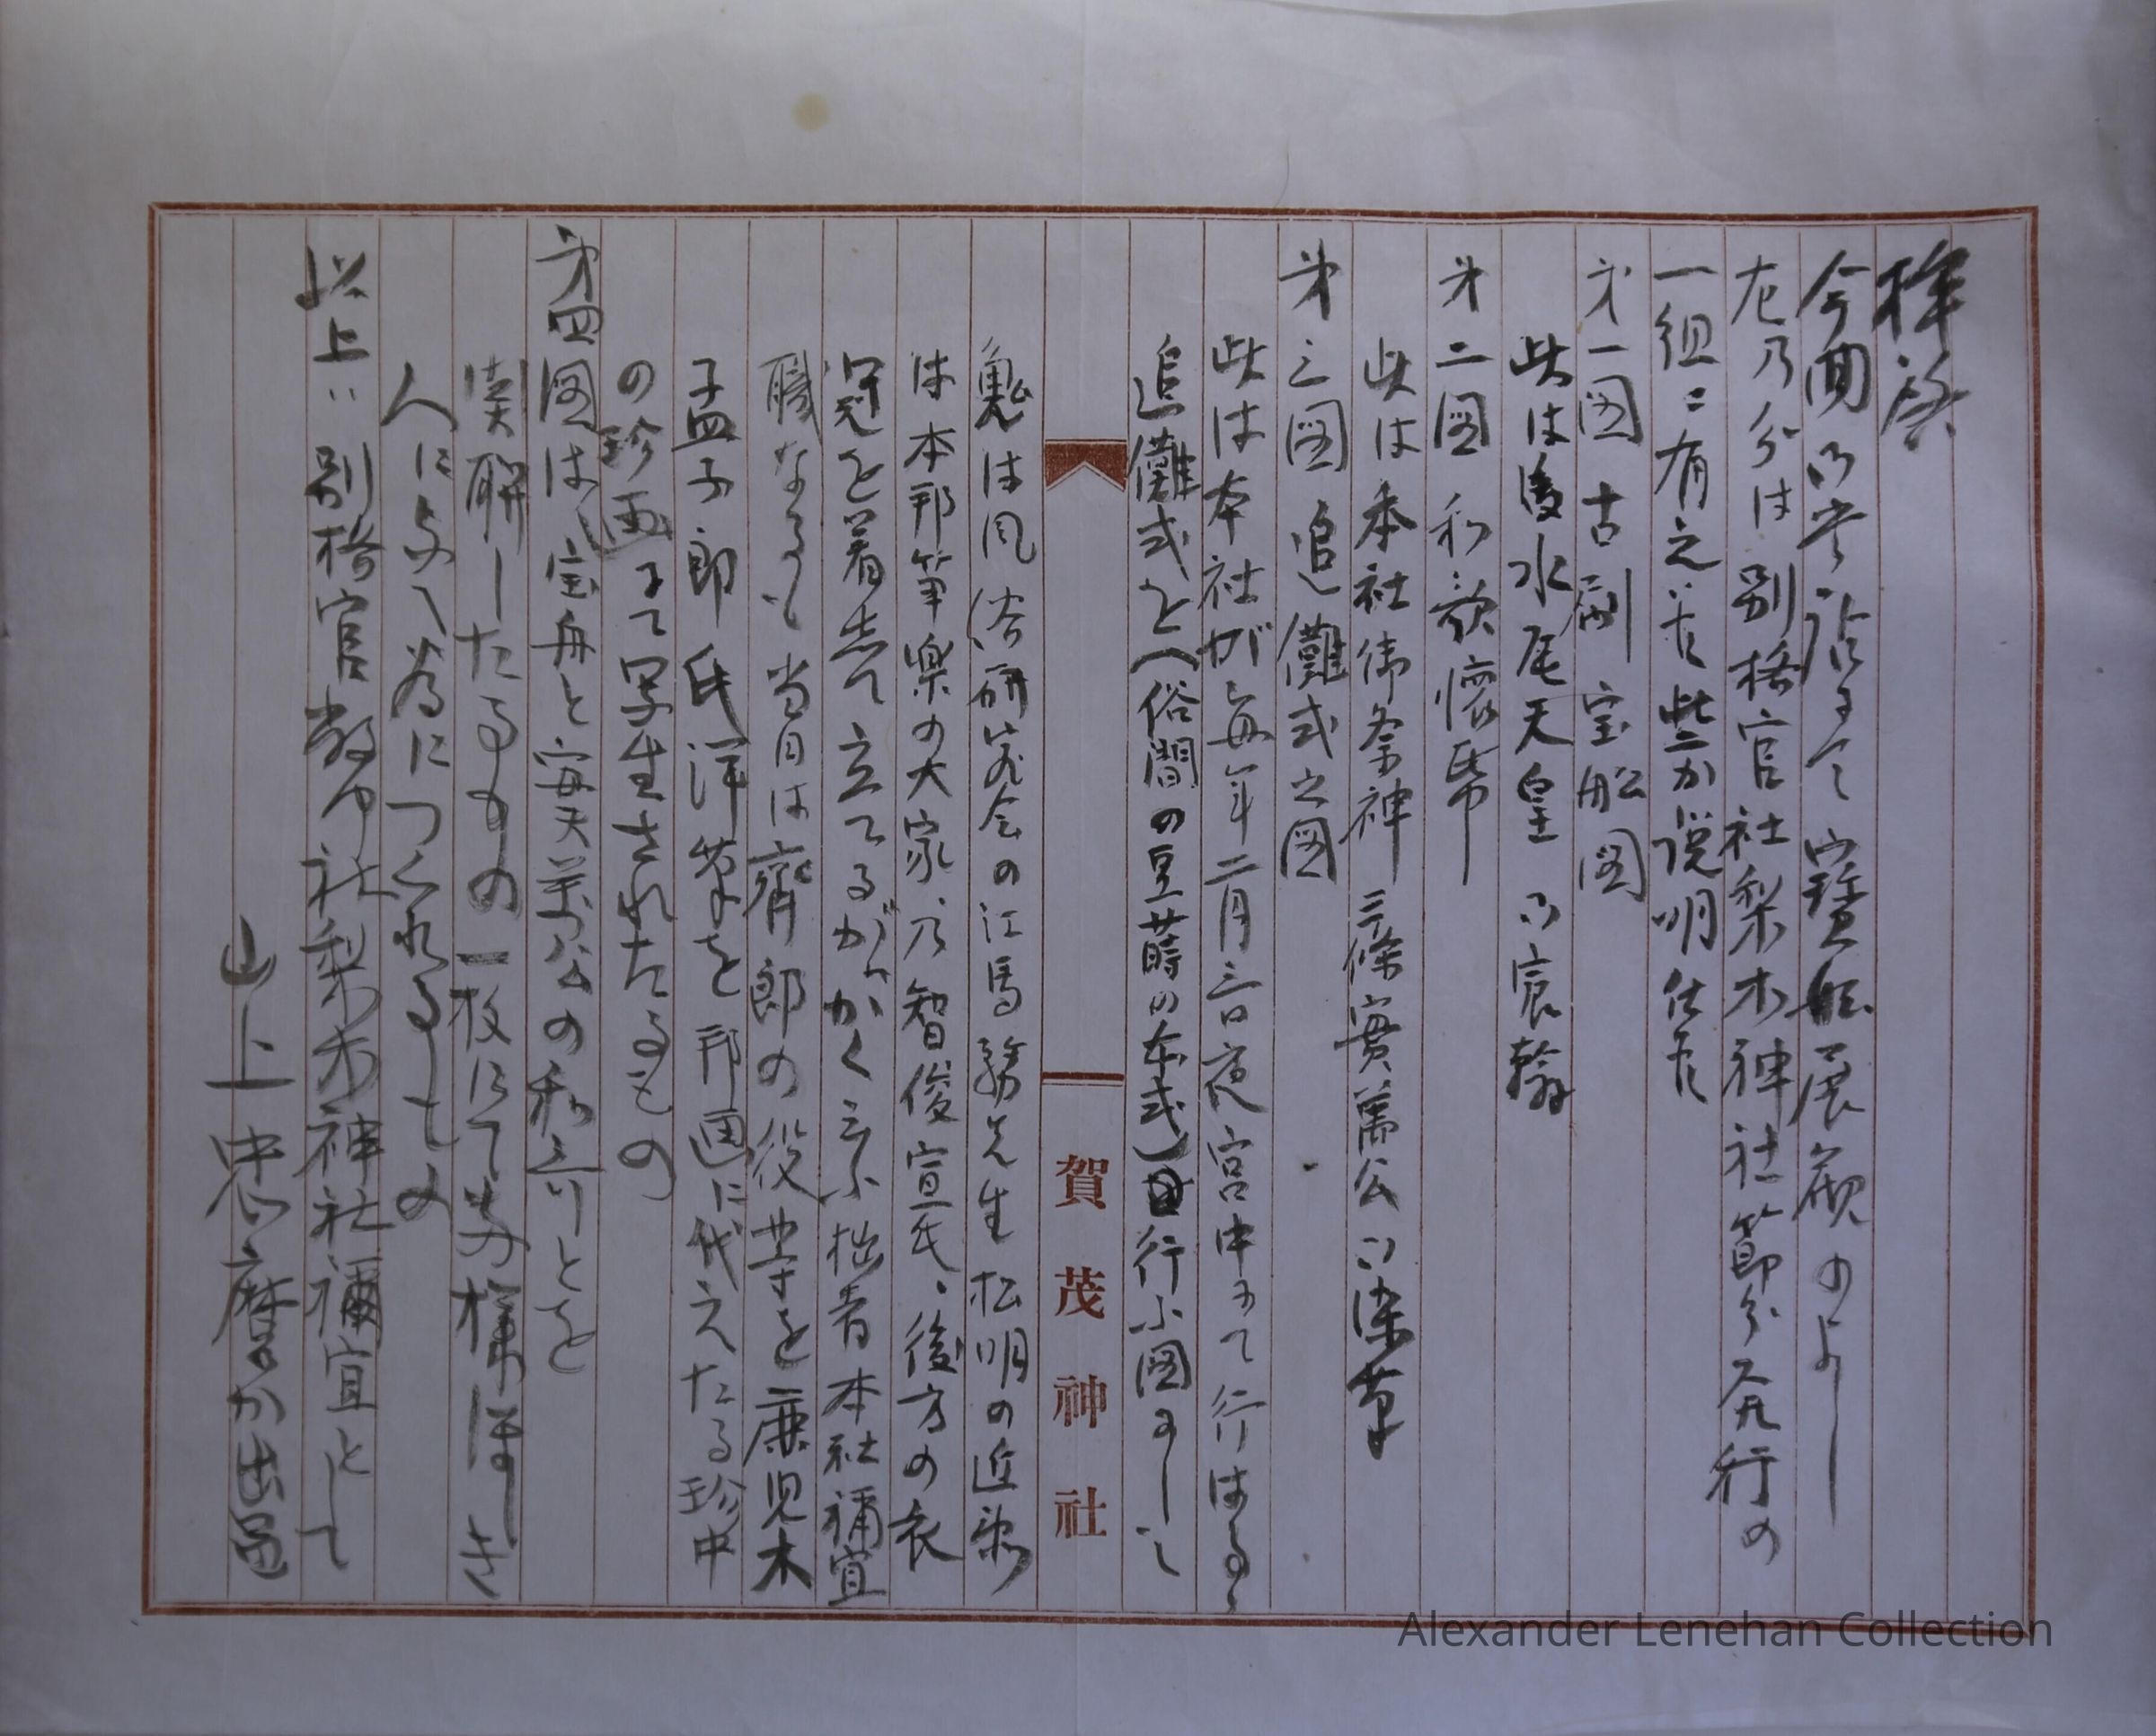 拝啓
今回御当所にて寶船展観のよし
左乃分は別格官社梨木神社節分発行の
一組ニ有之候此か説明仕候
第一図 古刷 宝船図
此は後水尾天皇御宸翰
第二図 和歌懐帋
此は本社御祭神三條實萬公御染筆
第三図 追儺式之図
此は本社が毎年二月三日夜宮中にて行はるゝ
追儺式を(俗間の豆蒔の本式)行ふ図にして
賀茂神社
鬼は風俗研究会の江馬務先生松明の近衛
は本邦笙楽の大家乃智俊宣氏、後方の衣
冠を着て立てるがかく云ふ拙者本社禰宜
職なるも当日は齋郎の役 等を廉児木
孟郎氏洋筆を邦画に代えたる珍中
の珍画にて写生されたるもの
第四図は宝舟と実萬公の和哥とを
関聯したるもの一枚にて
人に与へ為につくれるもの
以上ハ別格官幣中社梨木神社禰宜として
山上忠麿か出品
Alexander Lenehan Collection